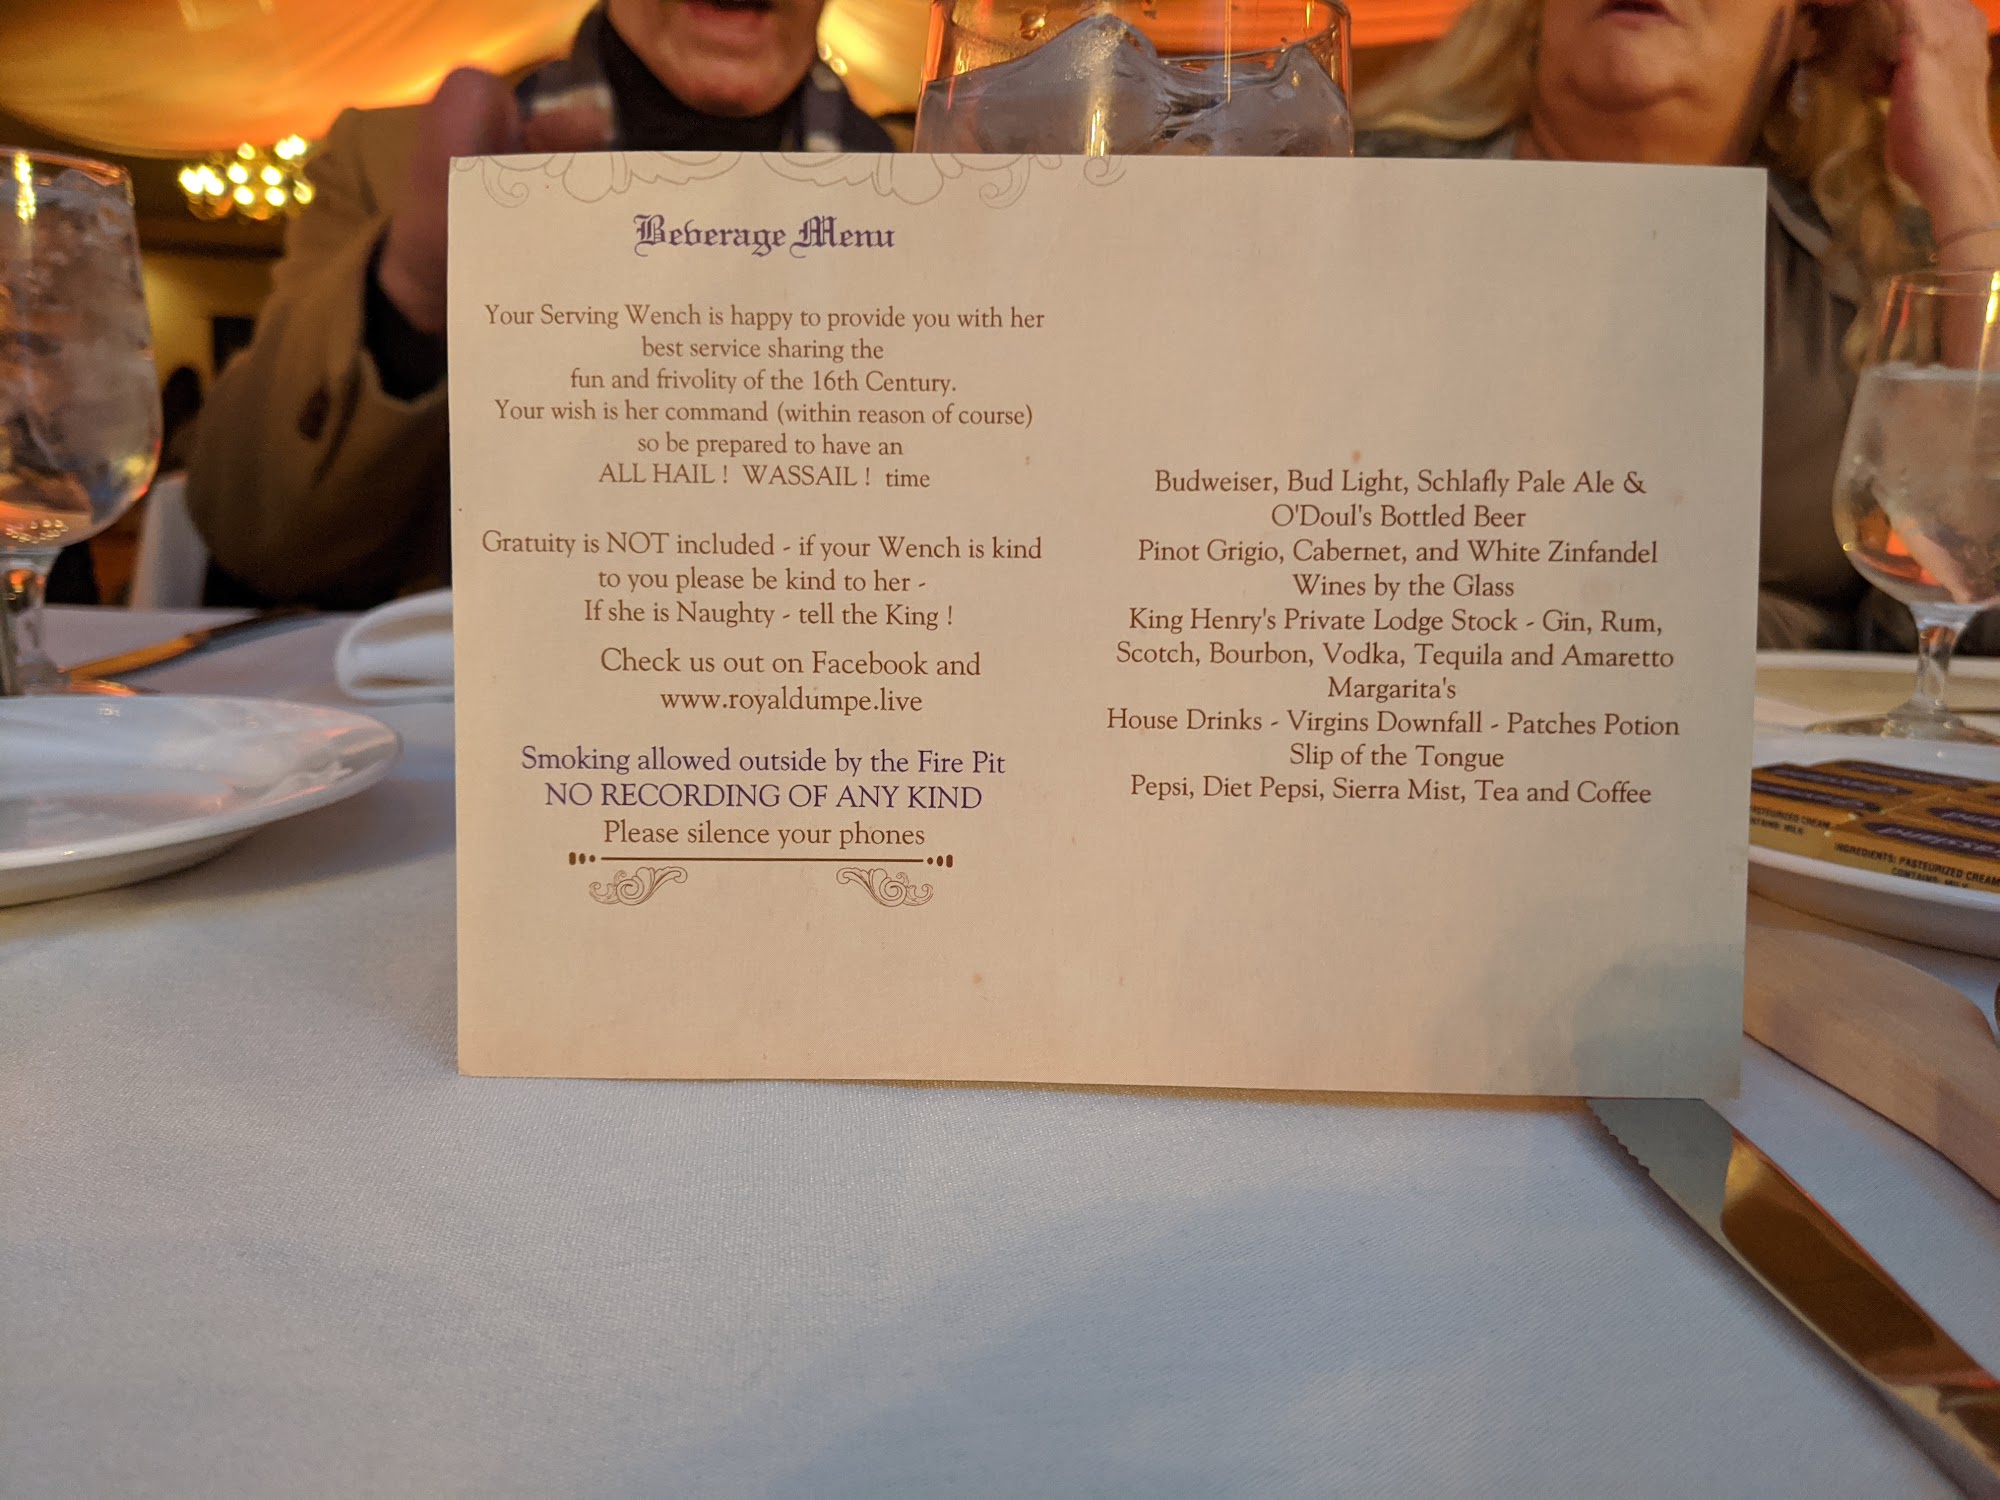 Beverage Menu
Your Serving Wench is happy to provide you with her
best service sharing the
fun and frivolity of the 16th Century.
Your wish is her command (within reason of course)
so be prepared to have an
ALL HAIL ! WASSAIL ! time
Gratuity is NOT included - if your Wench is kind
to you please be kind to her -
If she is Naughty - tell the King !
Check us out on Facebook and
www.royaldumpe.live
Smoking allowed outside by the Fire Pit
NO RECORDING OF ANY KIND
Please silence your phones
Budweiser, Bud Light, Schlafly Pale Ale &
O'Doul's Bottled Beer
Pinot Grigio, Cabernet, and White Zinfandel
Wines by the Glass
King Henry's Private Lodge Stock - Gin, Rum,
Scotch, Bourbon, Vodka, Tequila and Amaretto
Margarita's
House Drinks - Virgins Downfall - Patches Potion
Slip of the Tongue
Pepsi, Diet Pepsi, Sierra Mist, Tea and Coffee
INGREDIENTS: PASTEURIZED CREAM
CONTAINS: MILK